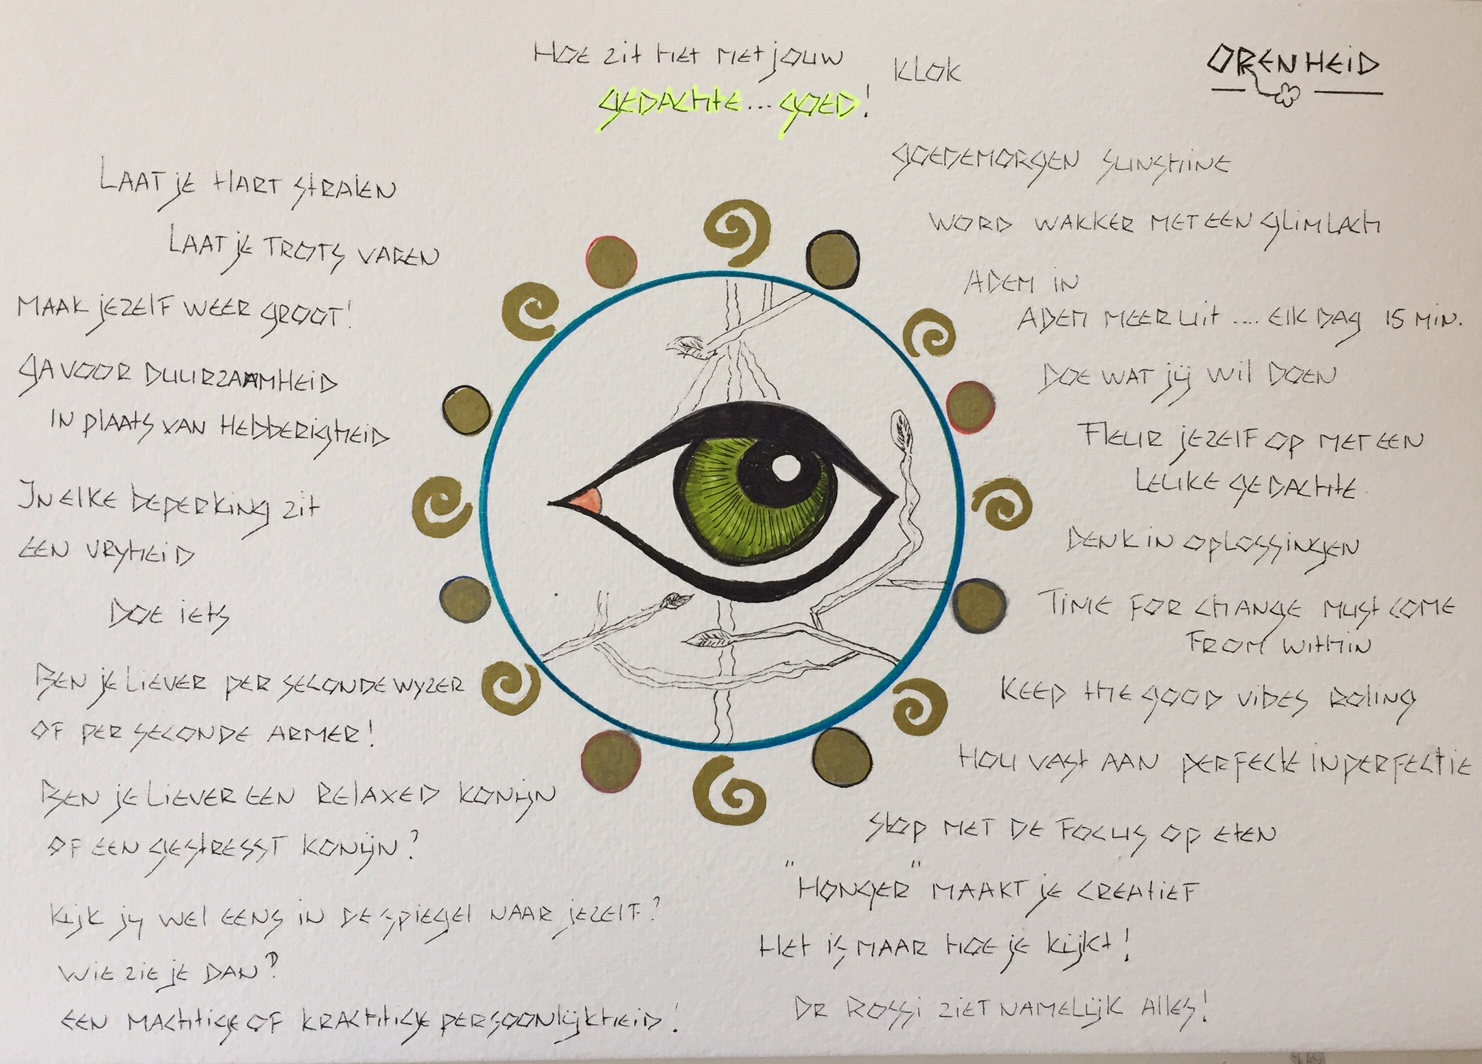 HOE ZIT HET MET JOUW
GEDACHTE...GOED!
KLOK
ORENHEID
GOEDEMORGEN SUNSHINE
WORD WAKKER MET EEN GLIMLACH
ADEM IN
ADEM MEER UIT .... ELK DAG 15 MIN.
DOE WAT JIJ WIL DOEN
FLEUR JEZELF OP MET EEN
LEUKE GEDACHTE
DENK IN OPLOSSINGEN
TIME FOR CHANGE MUST COME
FROM WITHIN
KEEP THE GOOD VIBES ROLING
HOU VAST AAN PERFECTE INPERFECTIE
STOP MET DE FOCUS OP ETEN
"HONGER" MAAKT JE CREATIEF
HET IS MAAR HOE JE KIJKT!
DR ROSSI ZIET NAMELIJK ALLES!
LAAT JE HART STRALEN
LAAT JE TROTS VAREN
MAAK JEZELF WEER GROOT!
GA VOOR DUURZAAMHEID
IN PLAATS VAN HEBBERIGHEID
IN ELKE BEPERKING ZIT
EEN VRYHEID
DOE IETS
BEN JE LIEVER PER SECONDE WYZER
OF PER SECONDE ARMER!
BEN JE LIEVER EEN RELAXED KONIJN
OF EEN GESTRESST KONIJN?
KIJK JY WEL EENS IN DE SPIEGEL NAAR JEZELF?
WIE ZIE JE DAN?
EEN MACHTIGE OF KRACHTIGE PERSOONLIJKHEID!